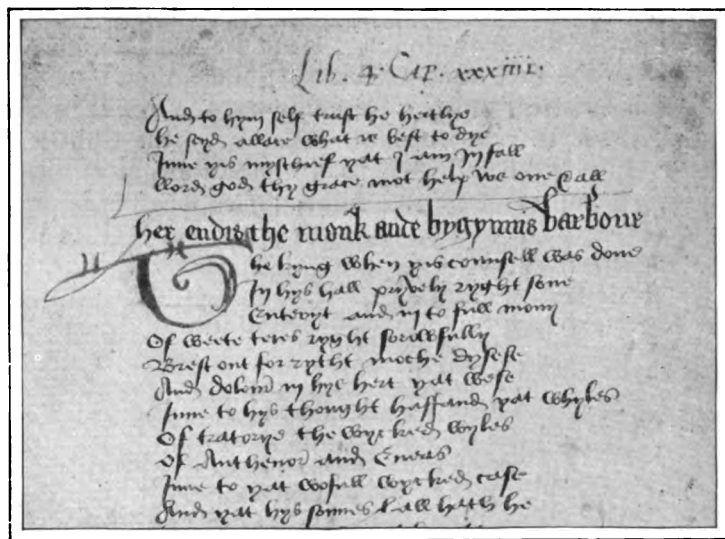 Lib. 4. Cap. xxxiiii.
And to hym self trist he hertlye
he seyd allace what is best to dye
Inne yis myschief yat I am In fall
lord god thy grace mot help ws one & all
her endis the monk ande bygynnis barbour
The kyng when yis counsell was done
In hys hall prively ryght sone
Enteryt and in to full mony
Of weete teres ryght sorowfully
Brest out for rytht moche dysese
And dolour in hys hert yat wese
Inne to hys thought haffand yat whyles
Of tratorye the wycked wyles
Of Anthenor and Eneas
Inne to yat wofull wycked case
And yat hys sonnes & all hath he